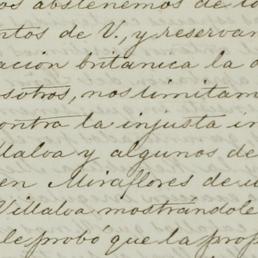 os abstenemos de to
ntos de V., y reservan
ación británica la d
sotros, nos limitam
contra la injusta in
llaloa y algunos de
en Miraflores de u
Villaloa mostrándole
le probó que la prop